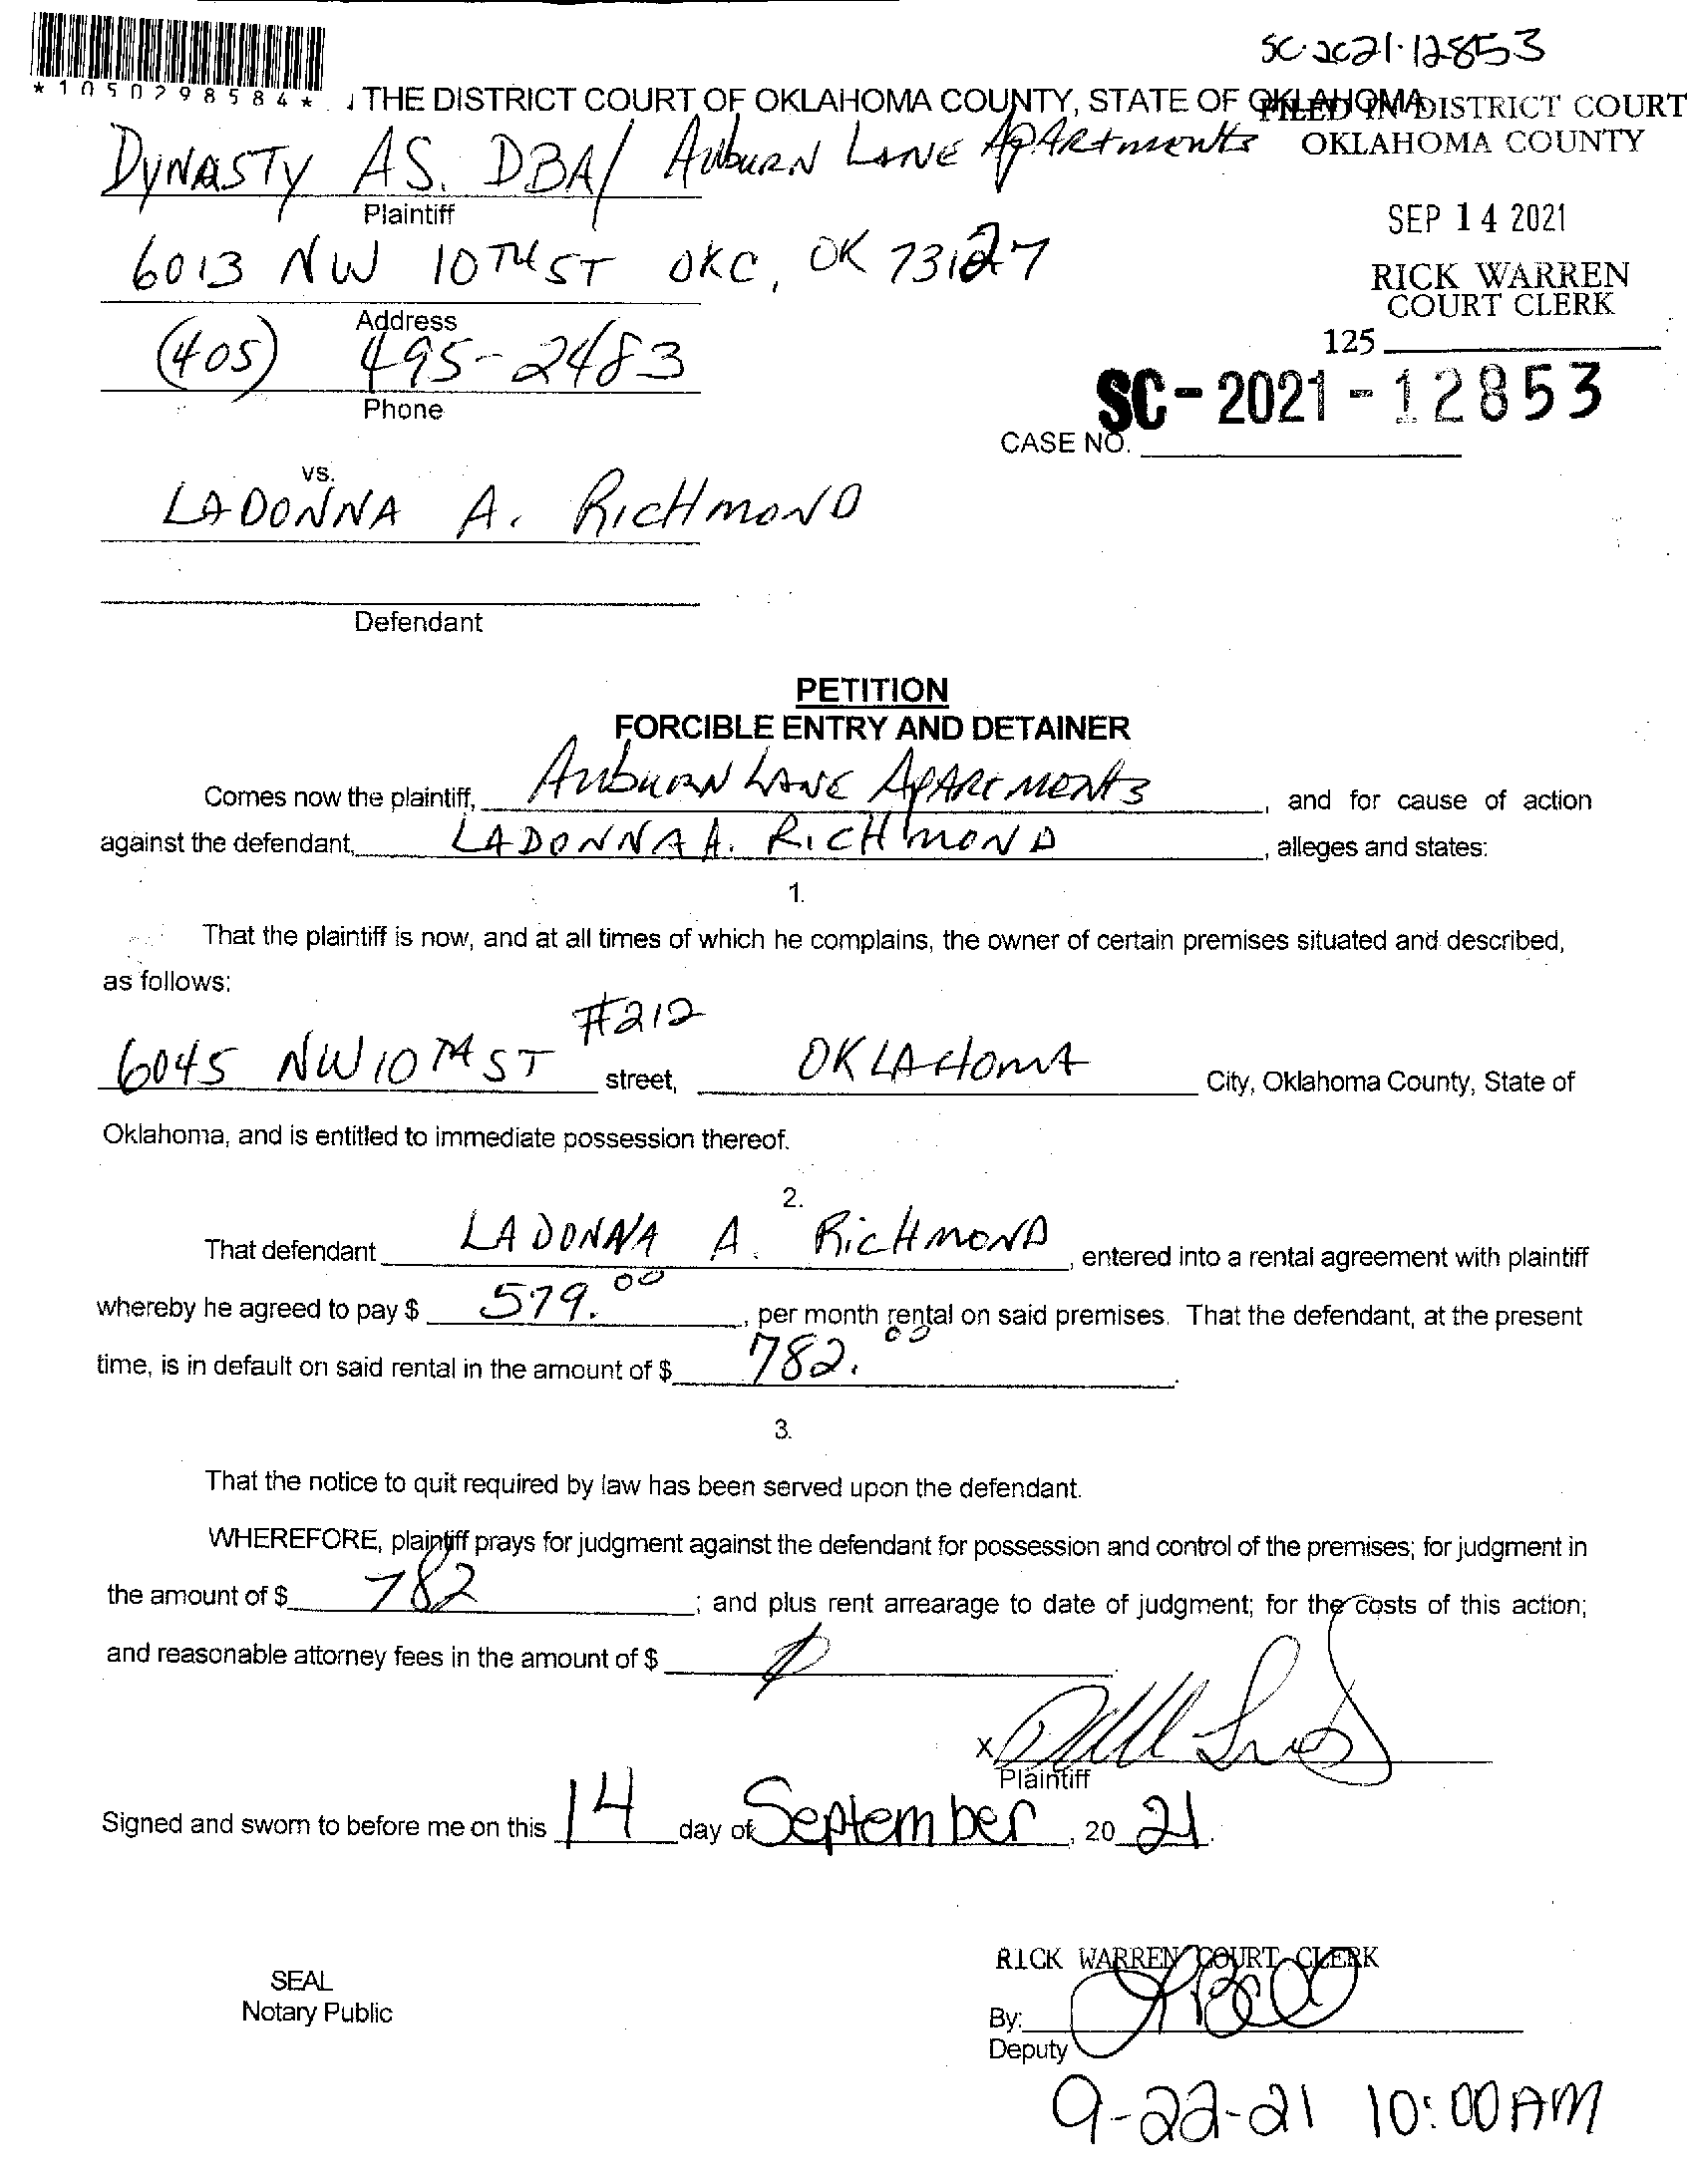 SC-2021-12853
*1050298584*
THE DISTRICT COURT OF OKLAHOMA COUNTY, STATE OF OKLAHOMA
FILED IN DISTRICT COURT
OKLAHOMA COUNTY
DYNASTY AS. DBA/ AUBURN LANE APARtments
Plaintiff
SEP 14 2021
6013 NW 10TH ST OKC, OK 73127
RICK WARREN
COURT CLERK
Address
125
(405) 495-2483
Phone
SC-2021-12853
CASE NO.
vs.
LADONNA A. RICHMOND
Defendant
PETITION
FORCIBLE ENTRY AND DETAINER
Comes now the plaintiff, AUBURN LANE APARtMENtS, and for cause of action
against the defendant, LADONNA A. RICHMOND, alleges and states:
1.
That the plaintiff is now, and at all times of which he complains, the owner of certain premises situated and described,
as follows:
#212
6045 NW 10TH ST street, OKLAHOMA City, Oklahoma County, State of
Oklahoma, and is entitled to immediate possession thereof.
2.
That defendant LADONNA A. RICHMOND, entered into a rental agreement with plaintiff
whereby he agreed to pay $ 579.00, per month rental on said premises. That the defendant, at the present
time, is in default on said rental in the amount of $ 782.00.
3.
That the notice to quit required by law has been served upon the defendant.
WHEREFORE, plaintiff prays for judgment against the defendant for possession and control of the premises; for judgment in
the amount of $ 782; and plus rent arrearage to date of judgment; for the costs of this action;
and reasonable attorney fees in the amount of $
X
Plaintiff
Signed and sworn to before me on this 14 day of September, 20 21.
RICK WARREN COURT CLERK
SEAL
Notary Public
By:
Deputy
9-22-21 10:00AM